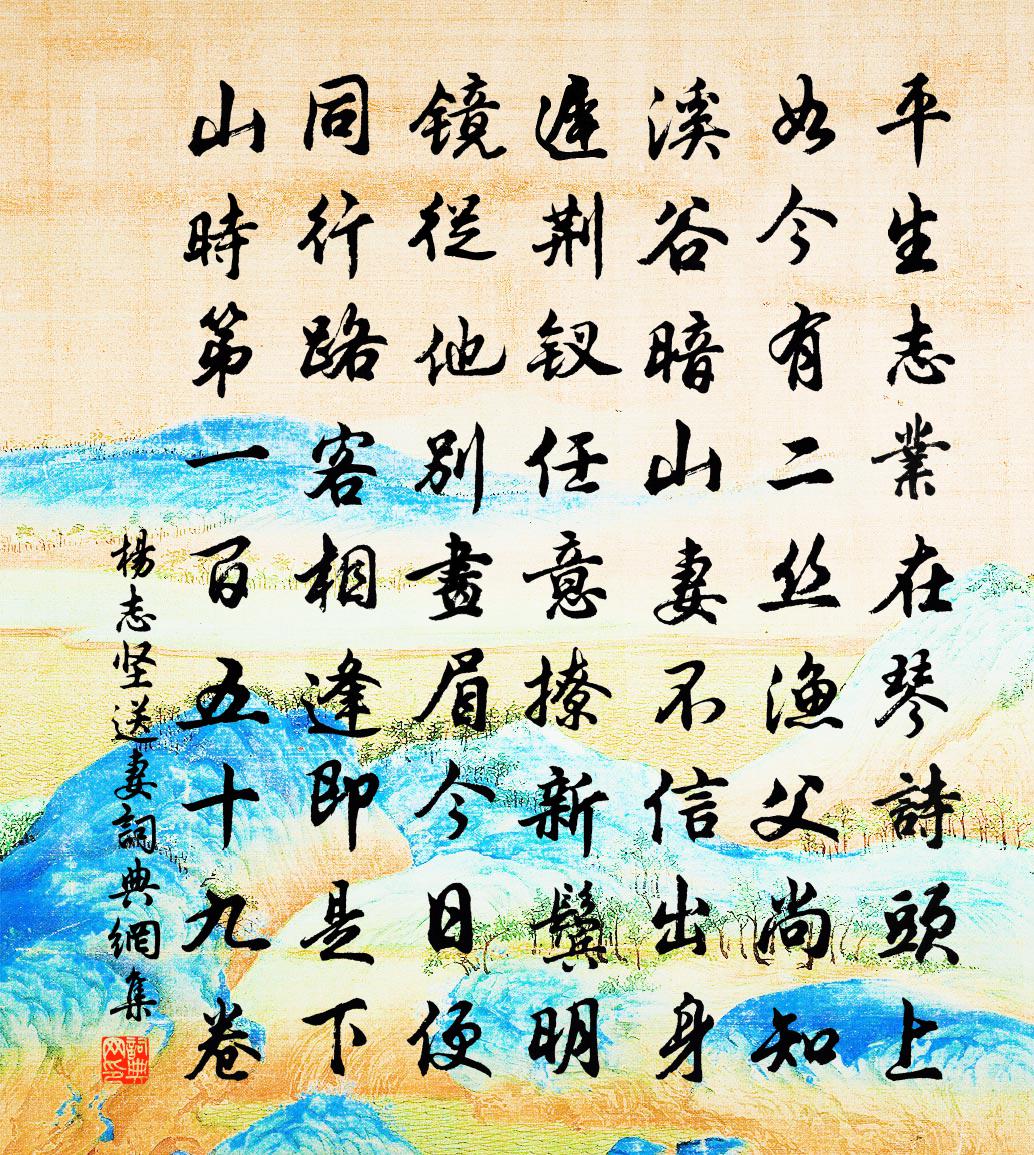 平生志業在琴詩頭上
如今有二丝漁父尚知
溪谷暗山妻不信出身
遲荆钗任意撩新鬓明
镜從他別畫眉今日便
同行路客相逢即是下
山時第一百五十九卷
楊志坚送妻詞典網集
詞典网印